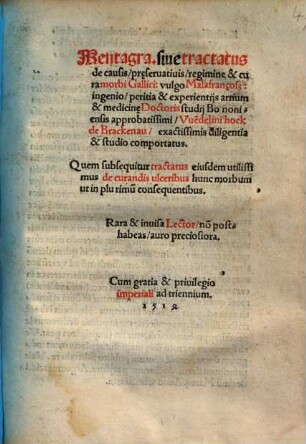 Mentagra, siue tractatus
de causis/ pręseruatiuis/ regimine & cu
ra morbi Gallici: vulgo Malafrancosę:
ingenio/ peritia & experientijs artium
& medicinę Doctoris studij Bo noni⸗
ensis approbatissimi/ Vuēdelini hock
de Brackenau/ exactissimis diligentia
& studio comportatus.
Quem subsequitur tractatus eiusdem utilissi
mus de curandis ulceribus hunc morbum
ut in plu rimū consequentibus.
Rara & inuisa Lector/ nō post⸗
habeas/ auro preciosiora.
Cum gratia & priuilegio
imperiali ad triennium.